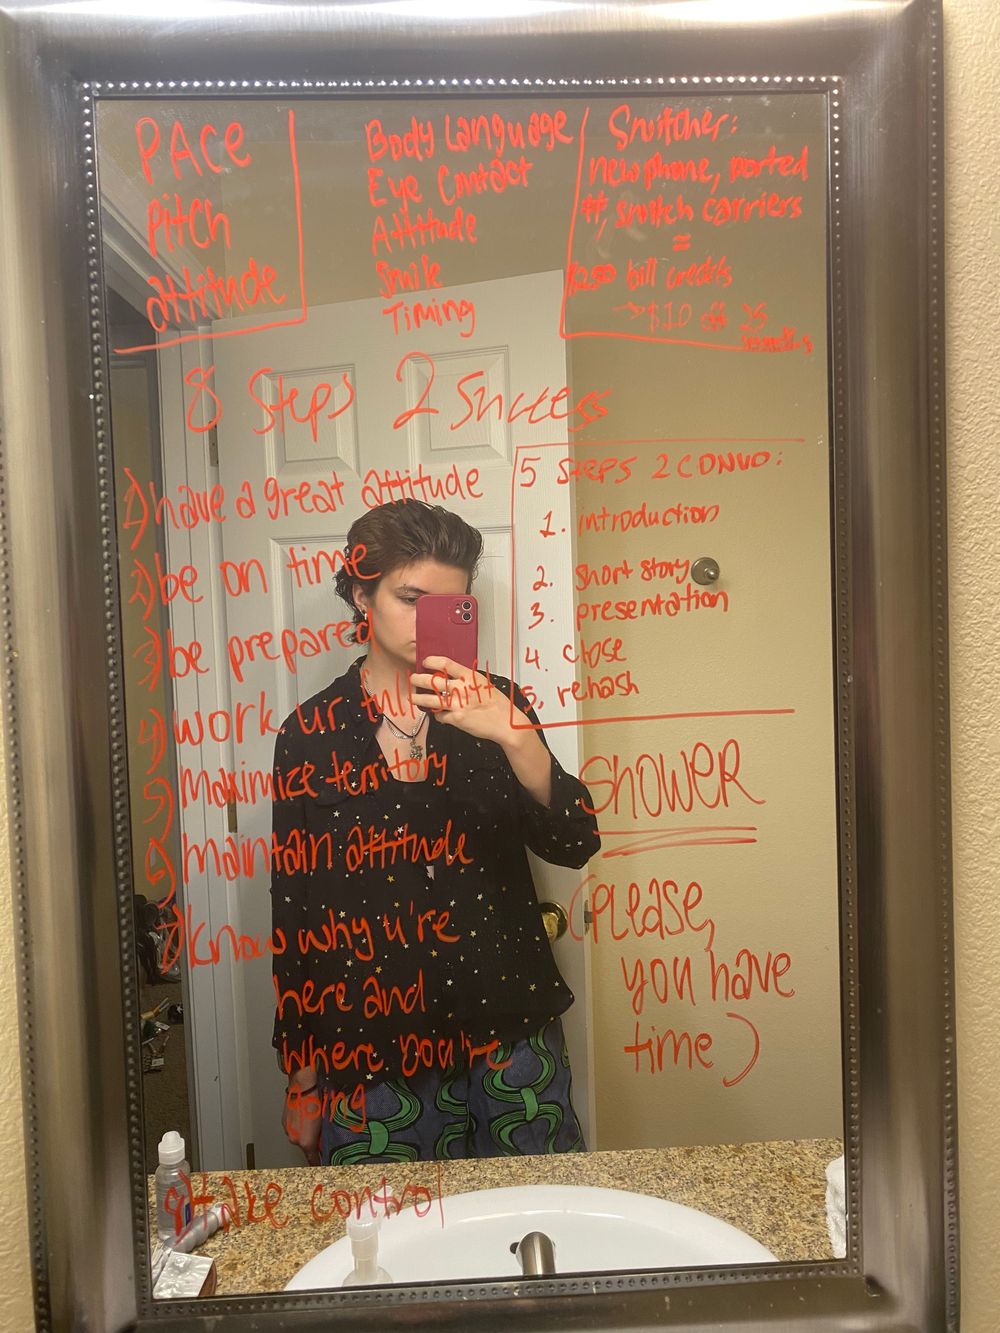 PACE
Pitch
attitude
Body Language
Eye Contact
Attitude
Smile
Timing
Switcher:
new phone, ported
#, switch carriers
=
$250 bill credits
→ $10 off 25
8 Steps 2 Success
1) have a great attitude
2) be on time
3) be prepared
4) work ur full shift
5) Maximize territory
6) maintain attitude
7) know why u're
here and
where you're
going
8) take control
5 STEPS 2 CONVO:
1. introduction
2. short story
3. presentation
4. close
5. rehash
SHOWER
(please,
you have
time)